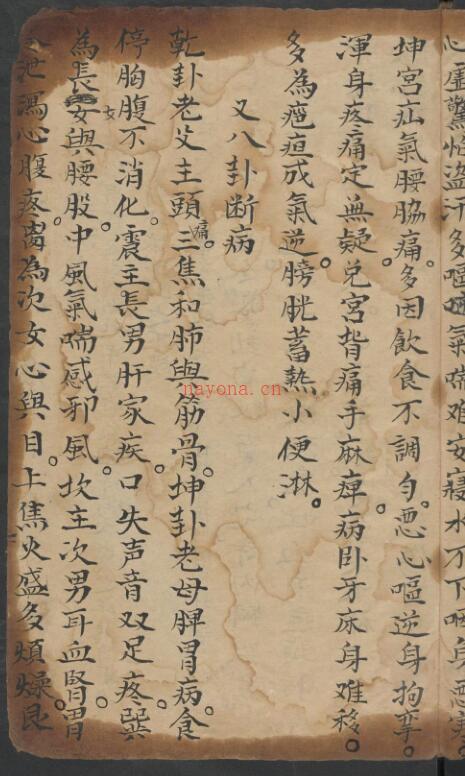 心虛驚怕盜汗多嘔吐氣喘难安寢水不下咽身惡寒
坤宮疝氣腰脇痛。多因飲食不調勻。惡心嘔逆身拘攣。
渾身疼痛定無疑。兌宮背痛手麻痺病卧牙床身难移。
多為疤疸成氣逆。膀胱蓄熱小便淋。
又八卦断病
乾卦老父主頭痛。三焦和肺與筋骨。坤卦老母脾胃病。食
停胸腹不消化。震主長男肝家疾。口失声音双足疼。巽
為長女與腰股。中風氣喘感邪風。坎主次男耳血腎胃
泄瀉心腹疼。离為次女心與目。上焦火盛多煩燥。艮
nayona.cn